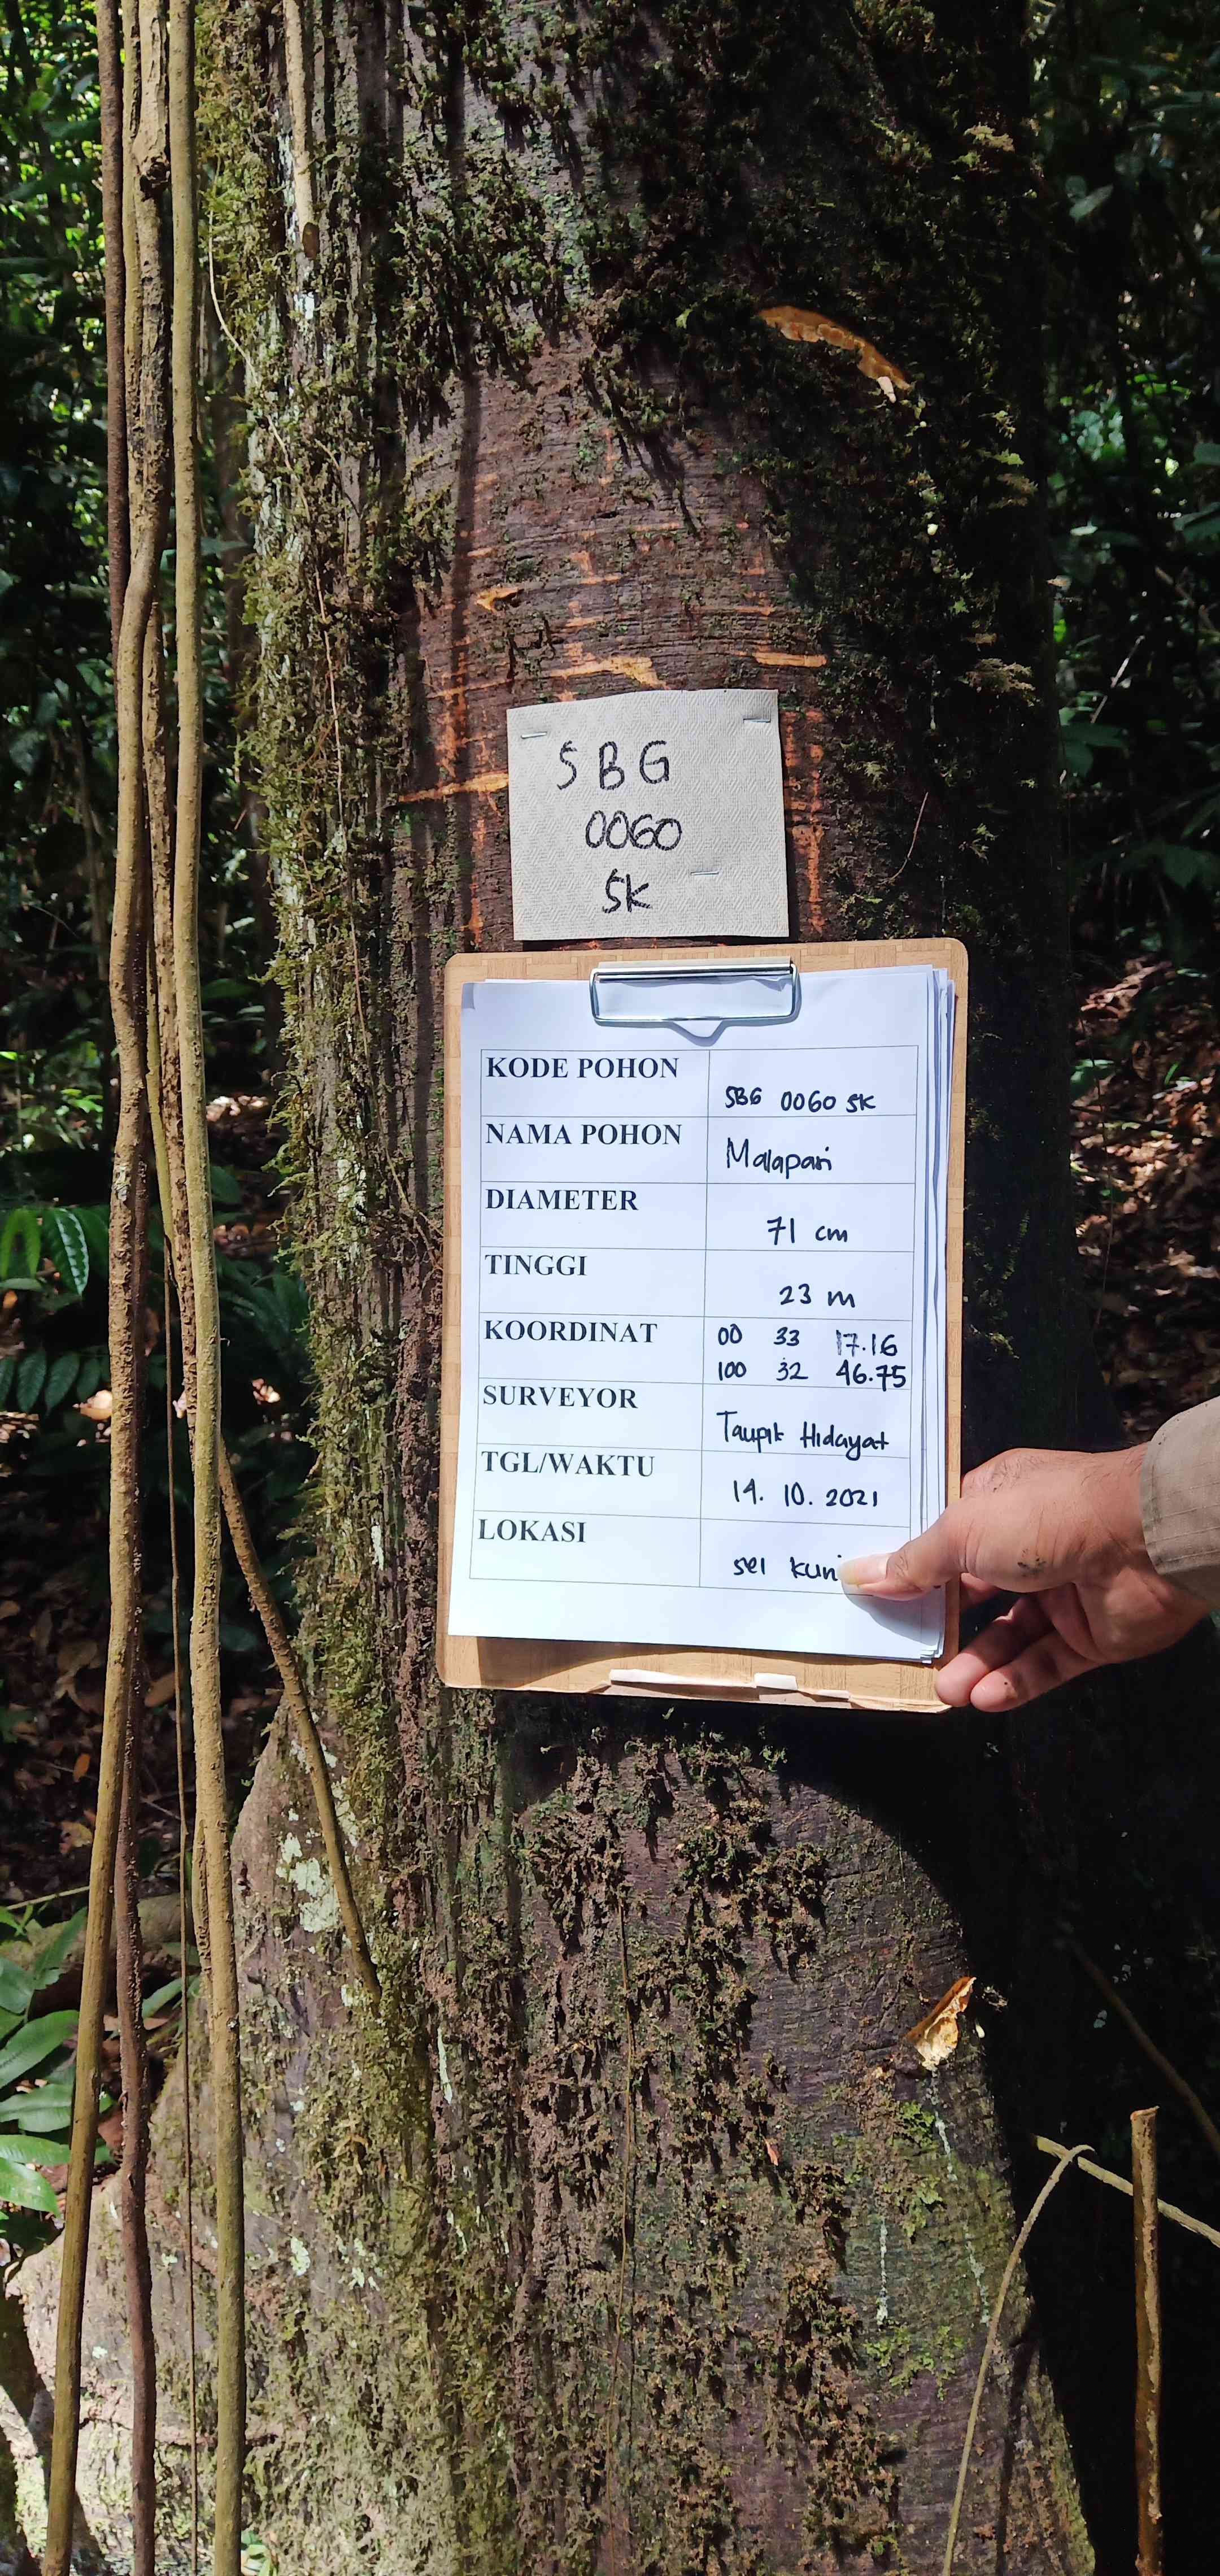 SBG
0060
SK
KODE POHON
SBG 0060 SK
NAMA POHON
Malapari
DIAMETER
71 cm
TINGGI
23 m
KOORDINAT
00 33 17.16
100 32 46.75
SURVEYOR
Taupik Hidayat
TGL/WAKTU
14. 10. 2021
LOKASI
sei